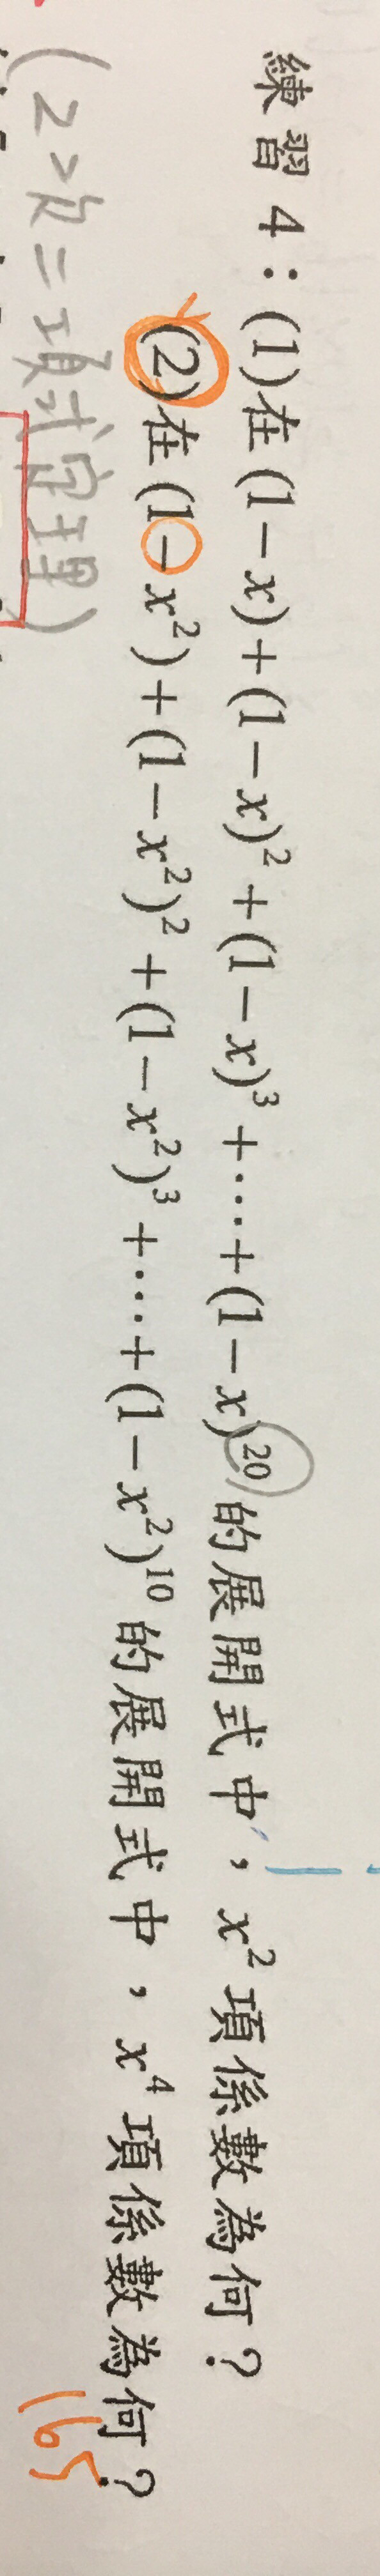 練習 4：(1)在 (1－x)＋(1－x)²＋(1－x)³＋⋯＋(1－x)²⁰ 的展開式中，x² 項係數為何？
(2)在 (1－x²)＋(1－x²)²＋(1－x²)³＋⋯＋(1－x²)¹⁰ 的展開式中，x⁴ 項係數為何？
165
(2次二項式定理)